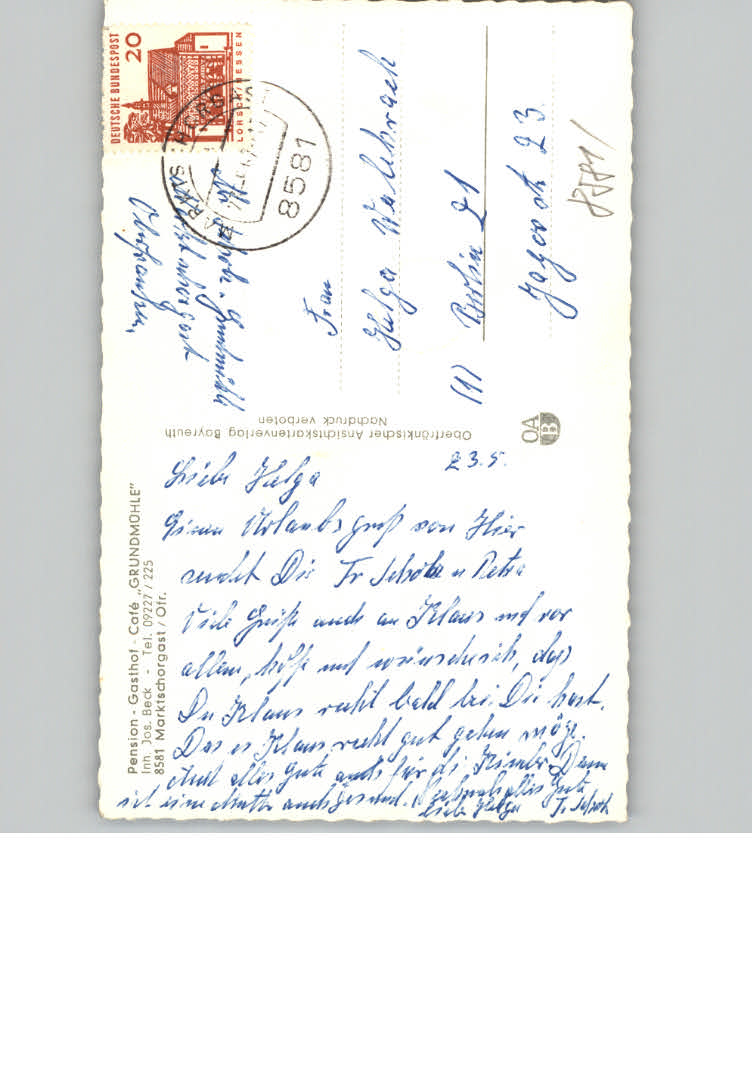 Pension - Gasthof - Café „GRUNDMÜHLE"
Inh. Jos. Beck - Tel. 09227 / 225
8581 Marktschorgast / Ofr.
Liebe Helga
23.5.
Einen Urlaubsgruß von Hier
sendet Dir Fr Scholz u Petra
Viele Grüße auch an Klaus und vor
allem, hoffe und wünsche ich, daß
Du Klaus recht bald bei Dir hast.
Das es Klaus recht gut gehen möge.
Und alles Gute auch für die Kinder. Dann
ist eine Mutter auch gesund. alles Gute
liebe Helga Fr. Scholz
Oberfränkischer Ansichtskartenverlag Bayreuth
Nachdruck verboten
OA
B
DEUTSCHE BUNDESPOST
20
LORSCH/HESSEN
8581
Marktschorgast
Oberfranken
Frau
Helga
(1) Berlin 21
Jagowstr 23
8581/